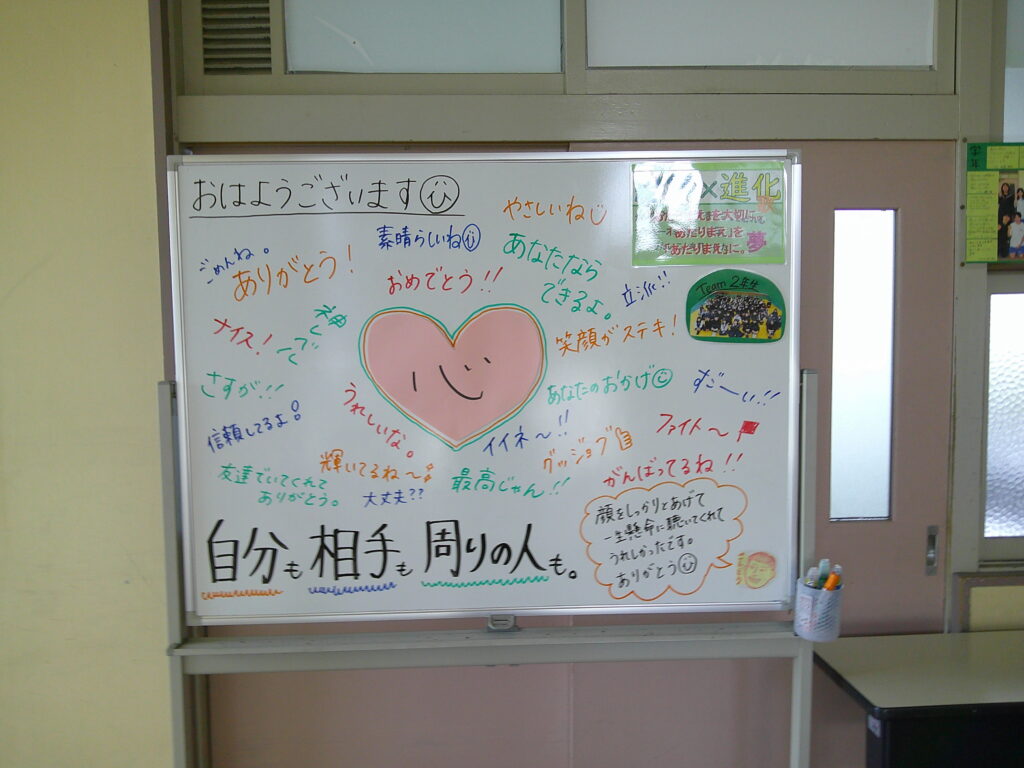 おはようございます
やさしいねじ
素晴らしいね
ごめんね。
ありがとう!
おめでとう!!
あなたなら
できるよ。
立派!!
Team 2年生
×進化
を大切にして
「あたりまえ」を
あたりまえに。
夢
ナイス!
笑顔がステキ!
さすが!!
うれしいな。
あなたのおかげ
すごーい!!
信頼してるよ
イイネ〜!!
グッジョブ
ファイト〜
輝いてるね〜
友達でいてくれて
ありがとう。
大丈夫??
最高じゃん!!
がんばってるね!!
顔をしっかりとあげて
一生懸命に聴いてくれて
うれしかったです。
ありがとう
自分も相手も周りの人も。